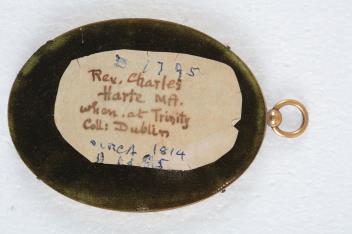 1795
Rev. Charles
Harte MA.
when. at Trinity
Coll: Dublin
CIRCA 1814